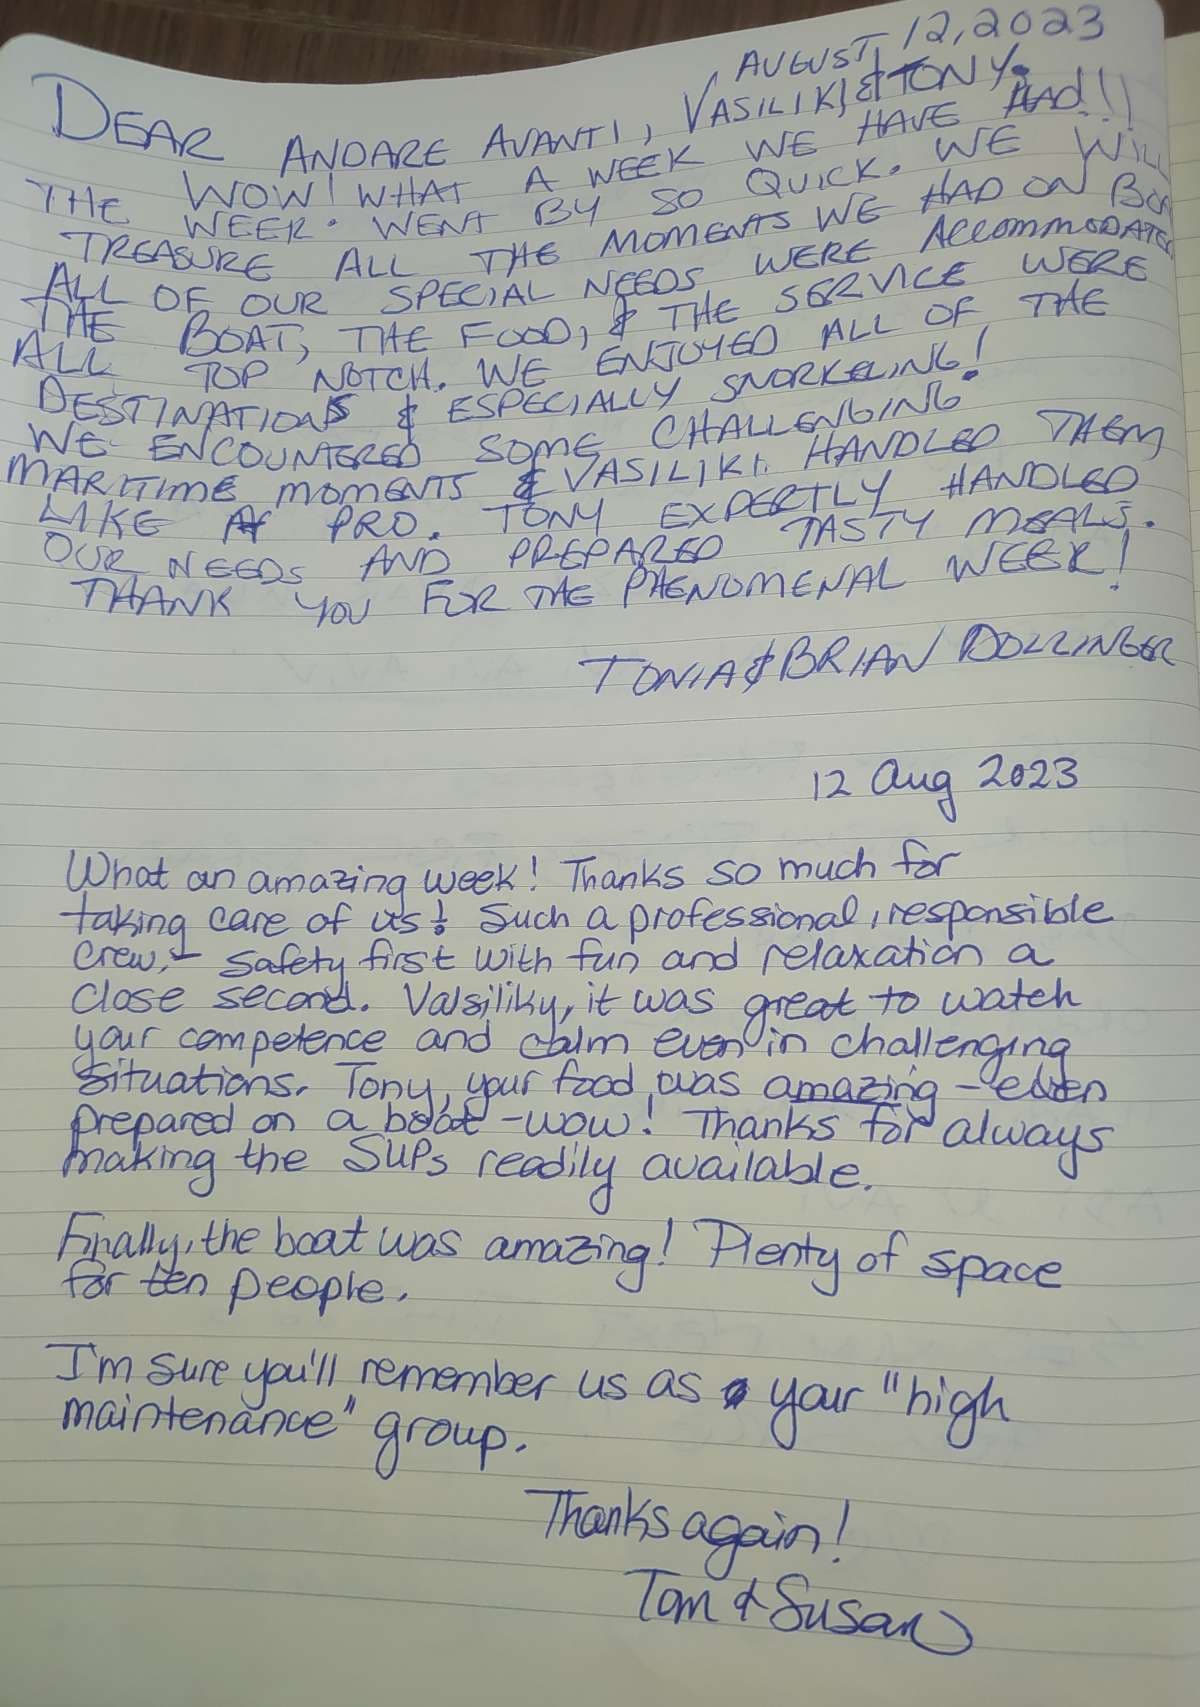 AUGUST, 12, 2023
DEAR ANDARE AVANTI, VASILIKI & TONY.
WOW! WHAT A WEEK WE HAVE HAD!!
THE WEEK WENT BY SO QUICK. WE WILL
TREASURE ALL THE MOMENTS WE HAD ON
ALL OF OUR SPECIAL NEEDS WERE ACCOMMODATED
THE BOAT, THE FOOD, & THE SERVICE WERE
ALL TOP NOTCH. WE ENJOYED ALL OF THE
DESTINATIONS & ESPECIALLY SNORKELING!
WE ENCOUNTERED SOME CHALLENGING
MARITIME MOMENTS & VASILIKI HANDLED THEM
LIKE A PRO. TONY EXPERTLY HANDLED
OUR NEEDS AND PREPARED TASTY MEALS.
THANK YOU FOR THE PHENOMENAL WEEK!
TONIA & BRIAN
12 Aug 2023
What an amazing week! Thanks so much for
taking care of us! Such a professional, responsible
crew, safety first with fun and relaxation a
close second. Valsiliky, it was great to watch
your competence and calm even in challenging
situations. Tony, your food was amazing - even
prepared on a boat - wow! Thanks for always
making the SUPs readily available.
Finally, the boat was amazing! Plenty of space
for ten people.
I'm sure you'll remember us as your "high
maintenance" group.
Thanks again!
Tom & Susan